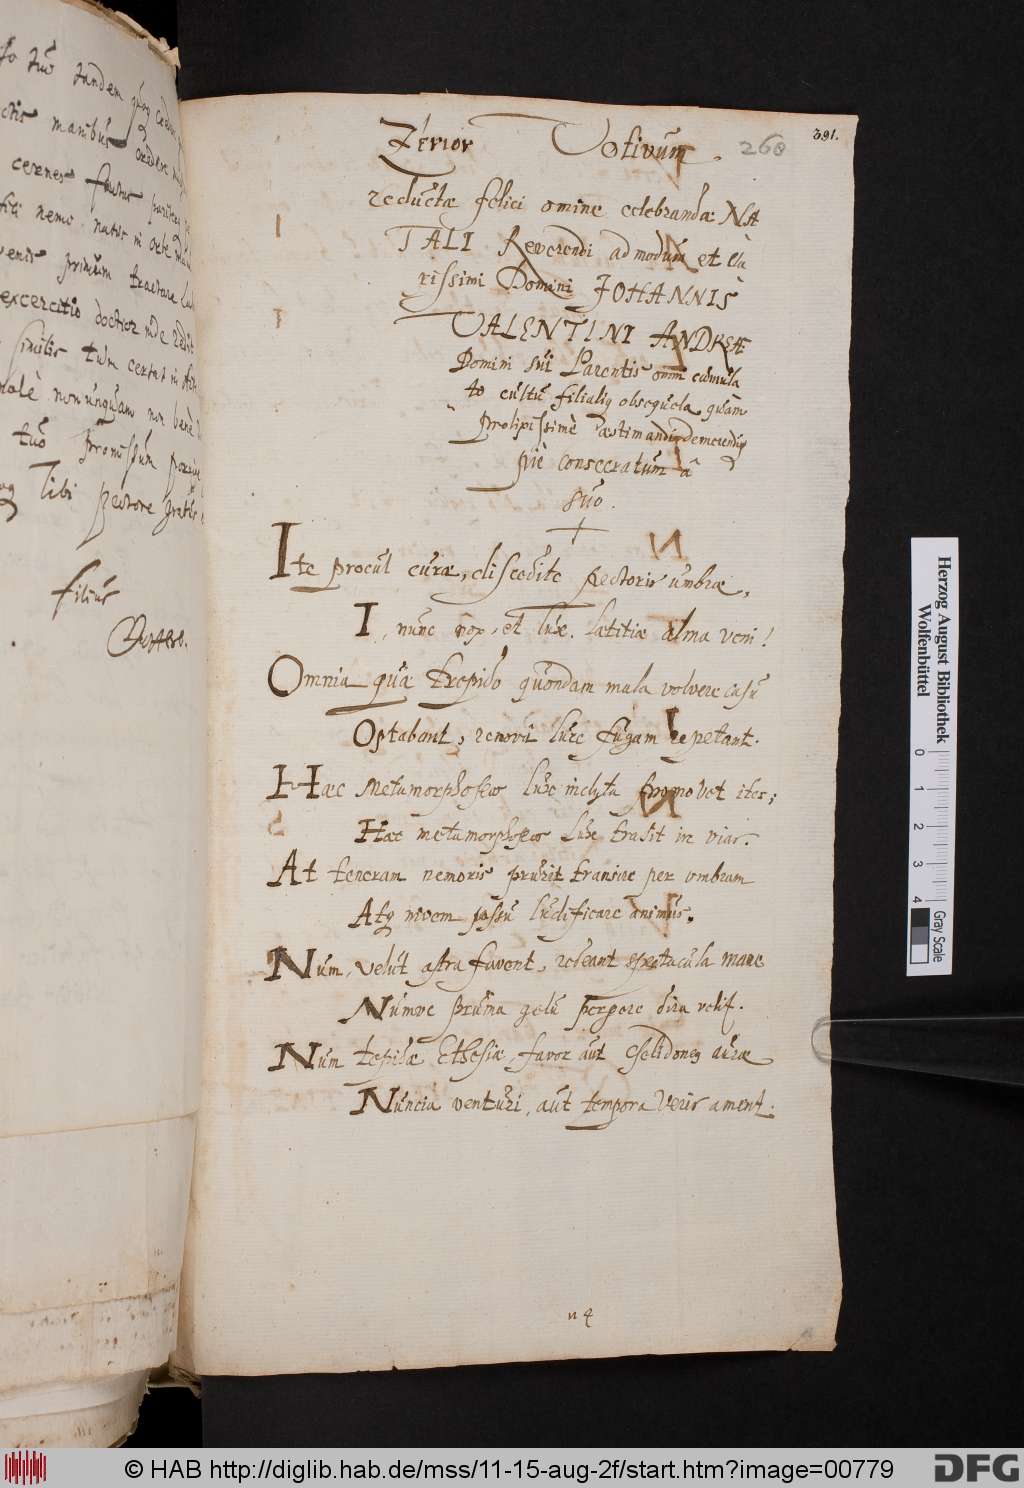 to tuo tandem
manibus
cernes faustus
nemo natus in orbe
primum tractare
excercitio doctior inde redit
similis tum certat in
non unquam non benè
tuo promissum
Tibi pectore gratus
filius
391.
Votivum. 260
reductæ felici omine celebrandæ NA
TALI Reverendi admodum et Cla
rissimi Domini JOHANNIS
VALENTINI ANDREÆ
Domini sui Parentis omni cumula
to cultu filialiq; obsequela quàm
prolixissimè æstimandi demerendiq;
piè consecratum â
suo.
Ite procul curæ, discedite pectoris umbræ,
I, nunc nox, et Lux. lætitiæ alma veni!
Omnia quæ trepido quondam mala volvere casu
Optabant, removit luxe fugam repetant.
Hæc Metamorphoseos lux inclyta promovet iter;
Hæc metamorphoseos lux trasit in vias.
At teneram nemoris prurit transire per umbram
Atq; nivem passu ludificare animus.
Num, velut astra favent, redeant spectacula mane
Numve pruma gelu pergere dira velit.
Num tepidæ Ethesiæ, favor aut Chelidoneq auræ
Nuncia venturi, aut tempora Veris ament.
n 4
Herzog August Bibliothek
Wolfenbüttel
0 1 2 3 4
Gray Scale
© HAB http://diglib.hab.de/mss/11-15-aug-2f/start.htm?image=00779
DFG